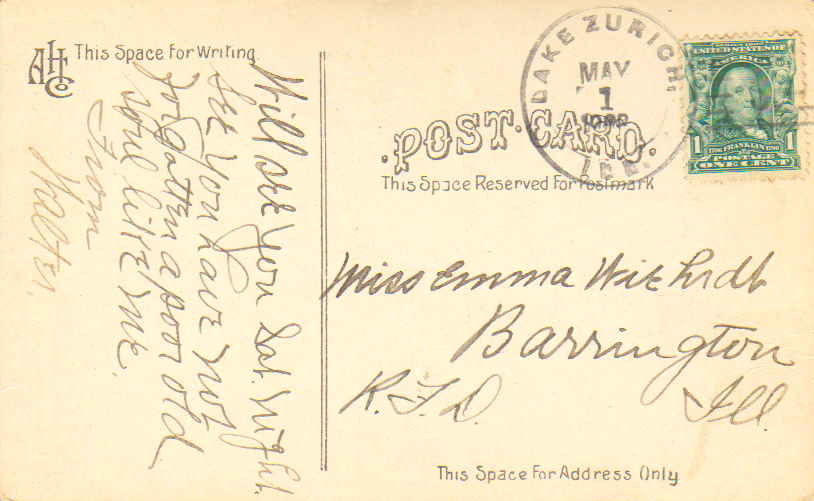 AHCo
This Space For Writing
Will see you Sat. Night.
See you have not
forgotten a poor old
soul like me.
From
Walter.
POST CARD.
This Space Reserved For Postmark
LAKE ZURICH,
MAY
1
ILL.
UNITED STATES OF
AMERICA
1 1
FRANKLIN
POSTAGE
ONE CENT
Miss Emma
Barrington
R.F.D. Ill
This Space For Address Only